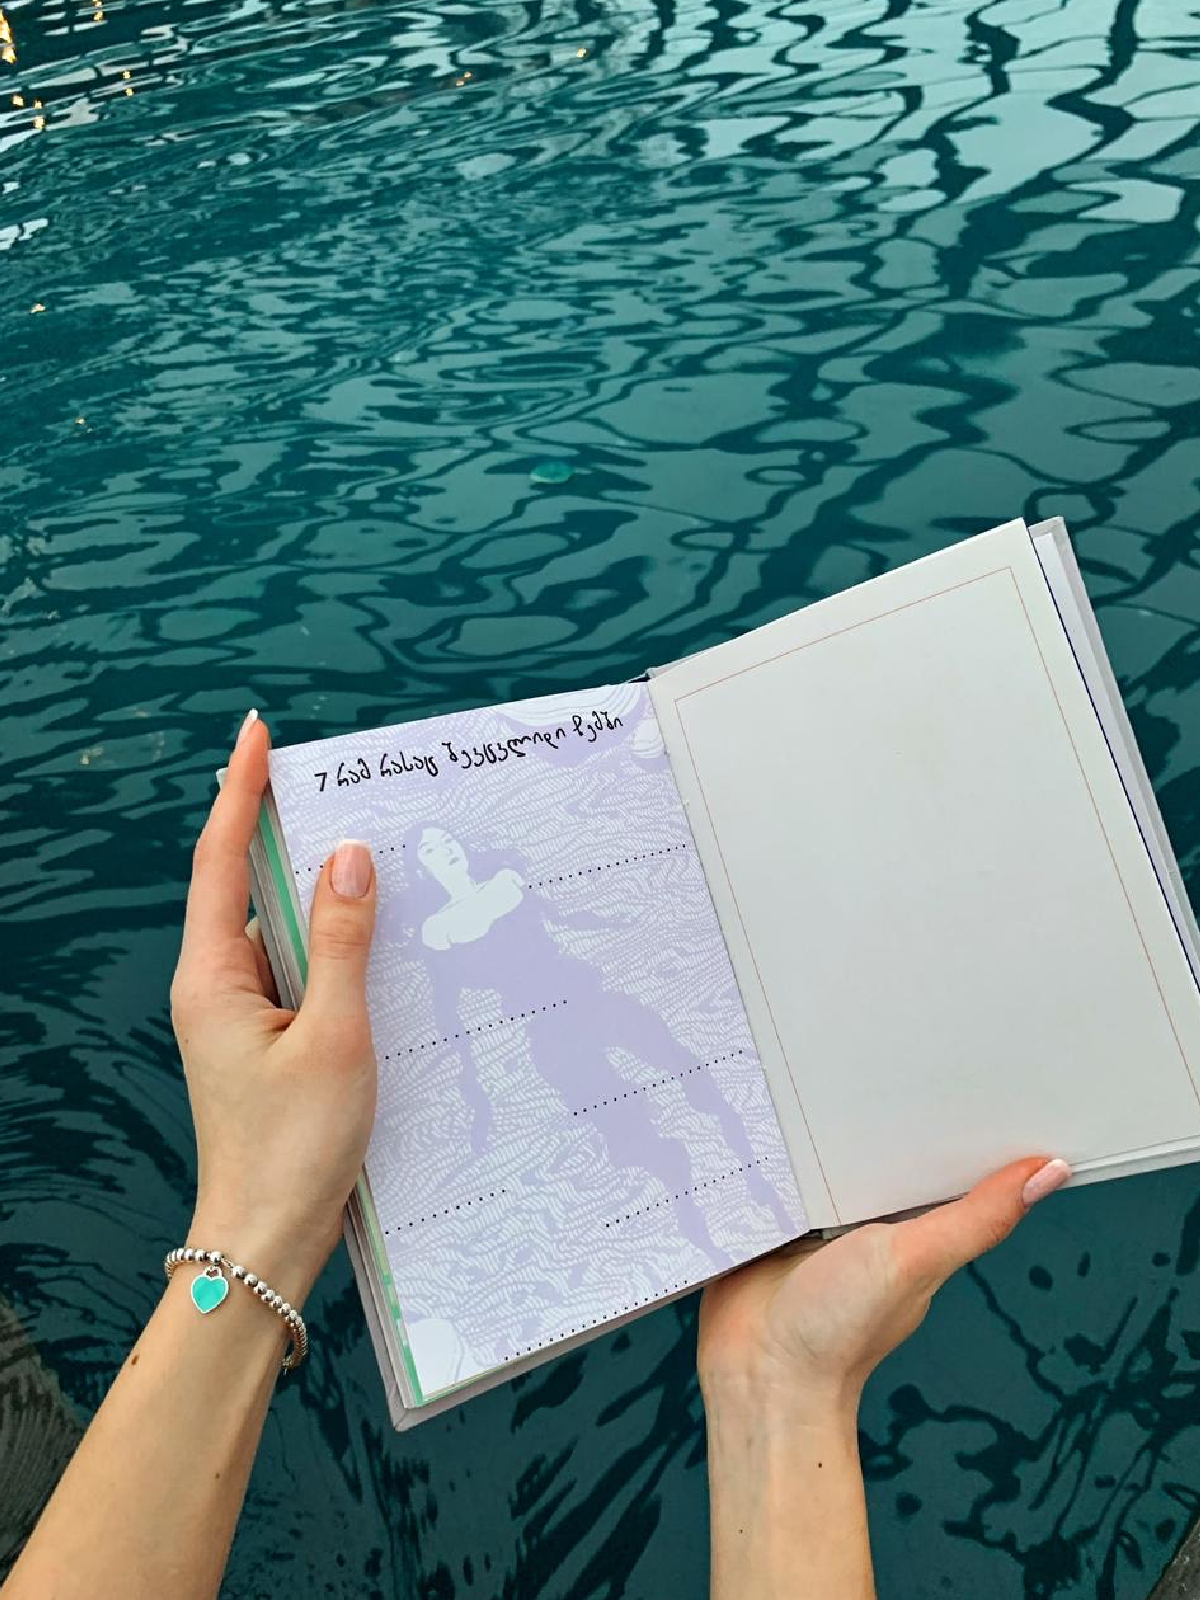 7 რამ რასაც შევცვლიდი ჩემში